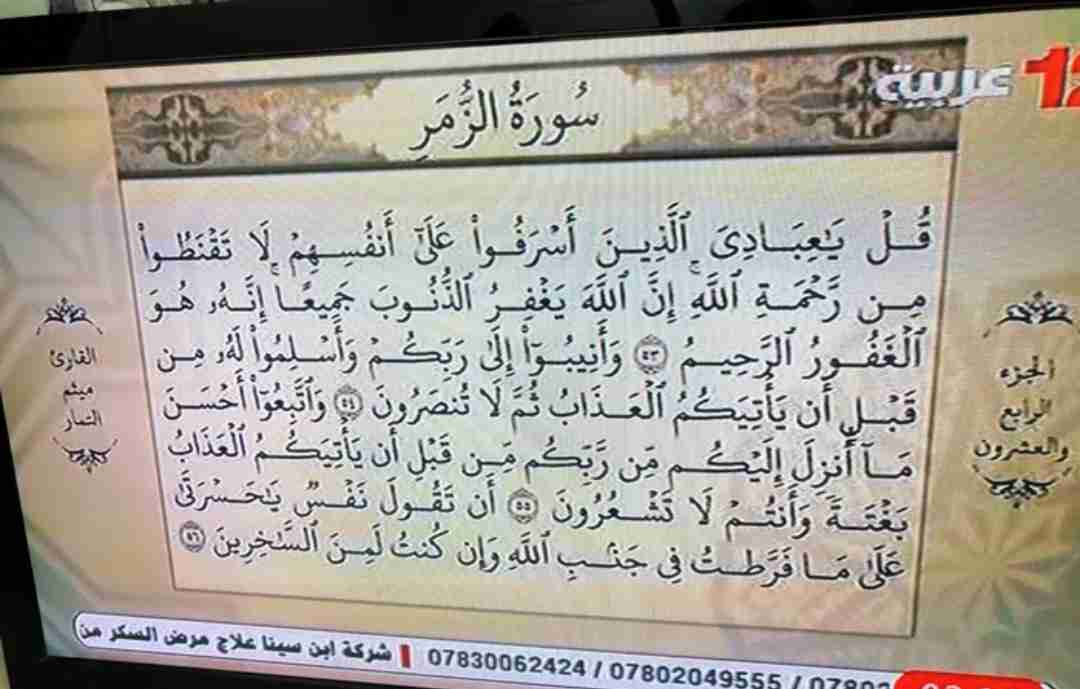 عربية 12
سُورَةُ الزُّمَرِ
قُلْ يَٰعِبَادِىَ ٱلَّذِينَ أَسْرَفُوا۟ عَلَىٰٓ أَنفُسِهِمْ لَا تَقْنَطُوا۟
مِن رَّحْمَةِ ٱللَّهِ ۚ إِنَّ ٱللَّهَ يَغْفِرُ ٱلذُّنُوبَ جَمِيعًا ۚ إِنَّهُۥ هُوَ
ٱلْغَفُورُ ٱلرَّحِيمُ ٥٣ وَأَنِيبُوٓا۟ إِلَىٰ رَبِّكُمْ وَأَسْلِمُوا۟ لَهُۥ مِن
قَبْلِ أَن يَأْتِيَكُمُ ٱلْعَذَابُ ثُمَّ لَا تُنصَرُونَ ٥٤ وَٱتَّبِعُوٓا۟ أَحْسَنَ
مَآ أُنزِلَ إِلَيْكُم مِّن رَّبِّكُم مِّن قَبْلِ أَن يَأْتِيَكُمُ ٱلْعَذَابُ
بَغْتَةً وَأَنتُمْ لَا تَشْعُرُونَ ٥٥ أَن تَقُولَ نَفْسٌ يَٰحَسْرَتَىٰ
عَلَىٰ مَا فَرَّطتُ فِى جَنۢبِ ٱللَّهِ وَإِن كُنتُ لَمِنَ ٱلسَّٰخِرِينَ ٥٦
الجزء
الرابع
والعشرون
القارئ
ميثم
التمار
شركة ابن سينا علاج مرض السكر من
07830062424 / 07802049555 /